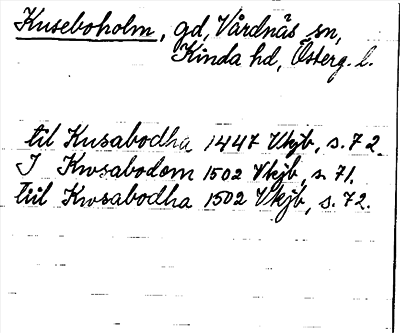 Kuseboholm, gd, Vårdnäs sn,
Kinda hd, Österg. l.
til Kusabodha 1447 Vkjb, s. 72.
J Kwsabodom 1502 Vkjb, s. 71.
tiil Kwsabodha 1502 Vkjb, s. 72.